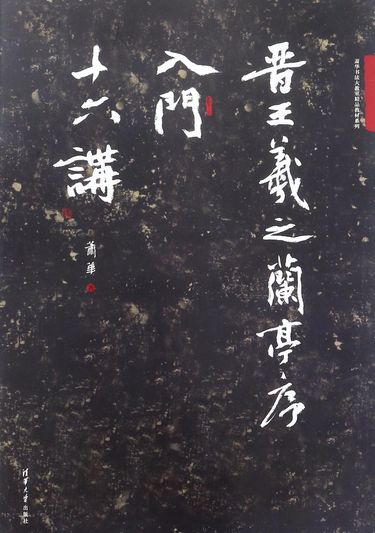 晋王羲之蘭亭序
入門
十六講
蕭華
蕭华书法大教室精品教材系列
清华大学出版社